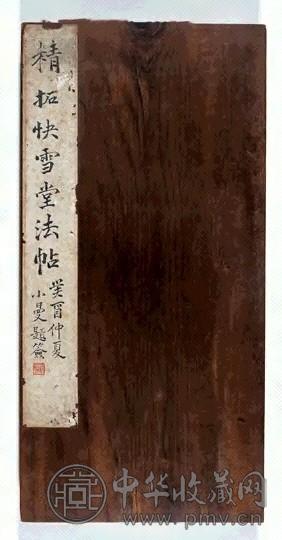 精拓快雪堂法帖
癸酉仲夏
小曼題簽
中华收藏网
www.pmv.cn